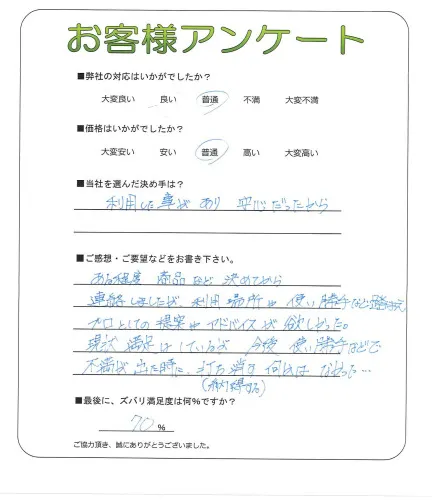 お客様アンケート
■弊社の対応はいかがでしたか？
大変良い 良い 普通 不満 大変不満
■価格はいかがでしたか？
大変安い 安い 普通 高い 大変高い
■当社を選んだ決め手は？
利用した事があり 安心だったから
■ご感想・ご要望などをお書き下さい。
ある程度 商品など 決めてから
連絡しましたが、利用場所や使い勝手など踏まえ
プロとしての提案やアドバイスが欲しかった。
現状満足はしているが 今後 使い勝手などで
不満が出た時に、打ち消す何かは なかった…
■最後に、ズバリ満足度は何％ですか？
70 %
ご協力頂き、誠にありがとうございました。